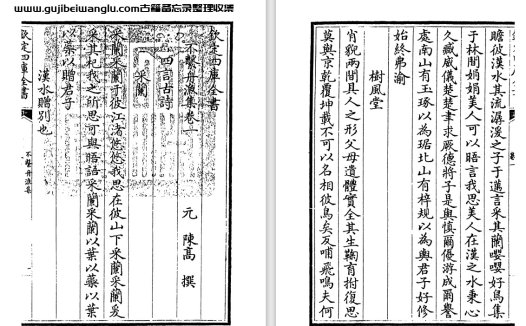 www.gujibeiwanglu.com古籍备忘录整理收集
欽定四庫全書
不繫舟漁集卷一
元 陳高 撰
四言古詩
采蘭
采蘭采蘭于彼江渚悠悠我思在彼山下采蘭采蘭爰
采其杞我之所思可與晤語采蘭采蘭以葉以藥以葉
以藥以贈君子
漢水贈別也
欽定四庫全書
不繫舟漁集
瞻彼漢水其流潺湲之子于邁言采其蘭嚶嚶好鳥集
于林間娟娟美人可以晤言我思美人在漢之水秉心
久臧威儀楚楚聿求厥德將子是與慎爾優游成爾譽
處南山有玉琢以為琚北山有梓規以為輿君子好修
始終弗渝
樹風堂
肖貌兩間具人之形父母遺體實全其生鞠育拊復恩
莫與京乾覆坤載不可以名相彼烏矣反哺飛鳴夫何